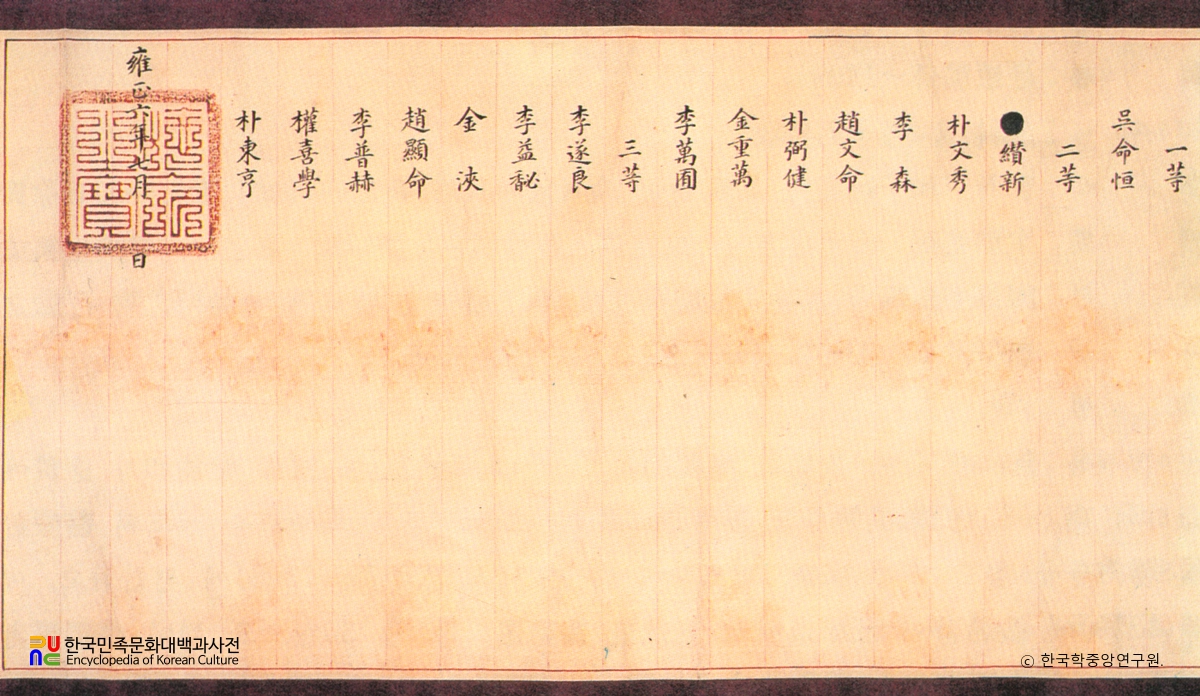 一等
吳命恒
二等
●纘新
朴文秀
李森
趙文命
朴弼健
金重萬
李萬囿
三等
李遂良
李益馝
金浹
趙顯命
李普赫
權喜學
朴東亨
雍正六年七月 日
한국민족문화대백과사전
Encyclopedia of Korean Culture
ⓒ 한국학중앙연구원.